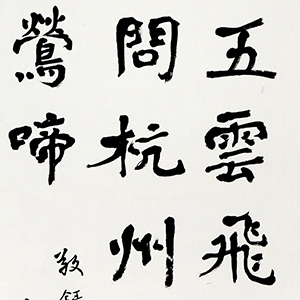 五雲飛
問杭州
鶯啼
敬